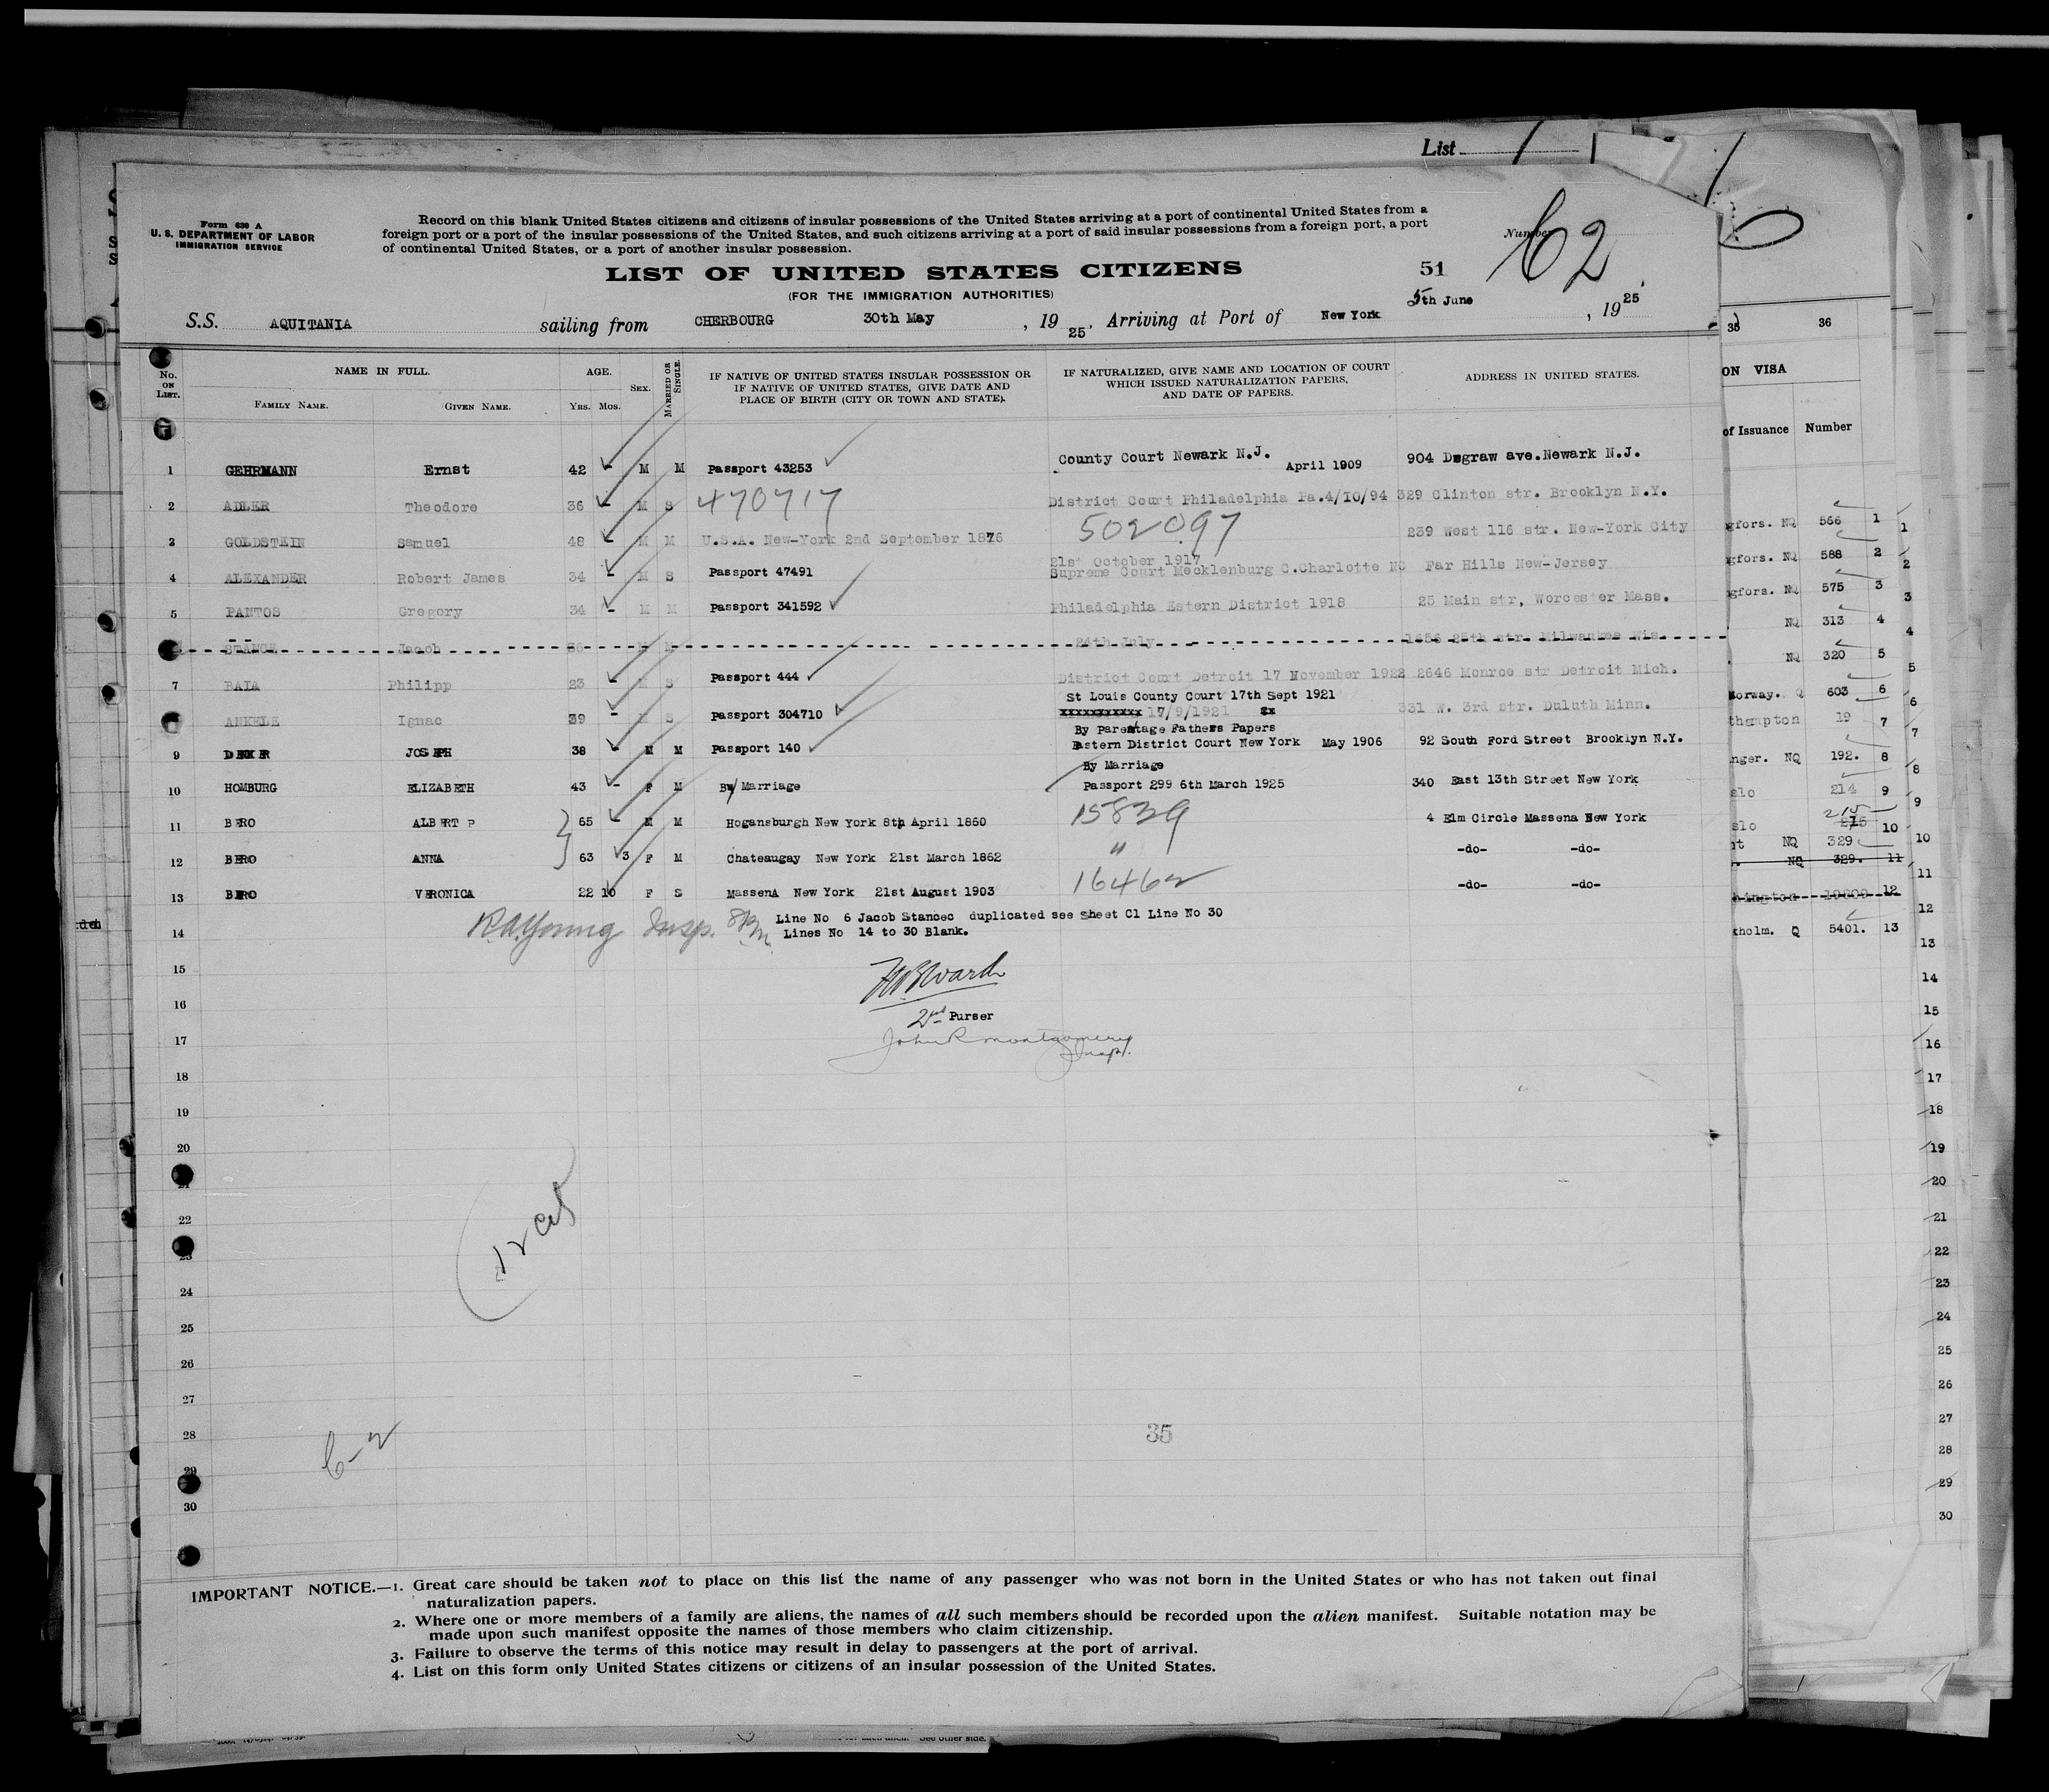 List 1
Form 630 A
U. S. DEPARTMENT OF LABOR
IMMIGRATION SERVICE
Record on this blank United States citizens and citizens of insular possessions of the United States arriving at a port of continental United States from a
foreign port or a port of the insular possessions of the United States, and such citizens arriving at a port of said insular possessions from a foreign port, a port
of continental United States, or a port of another insular possession.
Number 62
LIST OF UNITED STATES CITIZENS
51
(FOR THE IMMIGRATION AUTHORITIES)
S.S. AQUITANIA sailing from CHERBOURG 30th May , 19 25. Arriving at Port of New York 5th June , 19 25
No. ON LIST. NAME IN FULL. FAMILY NAME. GIVEN NAME. AGE. YRS. MOS. SEX. MARRIED OR SINGLE. IF NATIVE OF UNITED STATES INSULAR POSSESSION OR IF NATIVE OF UNITED STATES, GIVE DATE AND PLACE OF BIRTH (CITY OR TOWN AND STATE). IF NATURALIZED, GIVE NAME AND LOCATION OF COURT WHICH ISSUED NATURALIZATION PAPERS, AND DATE OF PAPERS. ADDRESS IN UNITED STATES.
1 GEHRMANN Ernst 42 - M M Passport 43253 County Court Newark N.J. April 1909 904 Degraw ave.Newark N.J.
2 ADLER Theodore 36 - M S 470717 District Court Philadelphia Pa.4/10/94 329 Clinton str. Brooklyn N.Y.
3 GOLDSTEIN Samuel 48 - M M U.S.A. New-York 2nd September 1876 502097 239 West 116 str. New-York City
4 ALEXANDER Robert James 34 - M S Passport 47491 21st October 1917 Supreme Court Mecklenburg C.Charlotte NC Far Hills New-Jersey
5 PANTOS Gregory 34 - M M Passport 341592 Philadelphia Estern District 1918 25 Main str, Worcester Mass.
STANCE Jacob 24th July 1656 25th str. Milwaukee Wis.
7 BAIA Philipp 23 - M S Passport 444 District Court Detroit 17 November 1922 2646 Monroe str Detroit Mich.
ANKELE Ignac 39 - M S Passport 304710 St Louis County Court 17th Sept 1921 xxxxxxxxxxx 17/9/1921 331 W. 3rd str. Duluth Minn.
9 DEKKER JOSEPH 38 - M M Passport 140 By Parentage Fathers Papers Eastern District Court New York May 1906 92 South Ford Street Brooklyn N.Y.
10 HOMBURG ELIZABETH 43 - F M By Marriage By Marriage Passport 299 6th March 1925 340 East 13th Street New York
11 BERO ALBERT P 65 - M M Hogansburgh New York 8th April 1860 15839 4 Elm Circle Massena New York
12 BERO ANNA 63 3 F M Chateaugay New York 21st March 1862 " -do- -do-
13 BERO VERONICA 22 10 F S MassenA New York 21st August 1903 16462 -do- -do-
Line No 6 Jacob Stancec duplicated see Sheet C1 Line No 30
14 R.A.Young Insp. Lines No 14 to 30 Blank.
15
16 2nd Purser
17 John R Montgomery Inspt.
18
19
20
21
22
23
24
25
26
27
28 35
29
30
IMPORTANT NOTICE.—1. Great care should be taken not to place on this list the name of any passenger who was not born in the United States or who has not taken out final
naturalization papers.
2. Where one or more members of a family are aliens, the names of all such members should be recorded upon the alien manifest. Suitable notation may be
made upon such manifest opposite the names of those members who claim citizenship.
3. Failure to observe the terms of this notice may result in delay to passengers at the port of arrival.
4. List on this form only United States citizens or citizens of an insular possession of the United States.
35 36
ON VISA
of Issuance Number
gfors. NQ 566 1
gfors. NQ 588 2
gfors. NQ 575 3
NQ 313 4
NQ 320 5
Norway. Q 603 6
thampton 19 7
nger. NQ 192. 8
slo 214 9
slo 215 10
NQ 329
NQ 329. 11
hington 12
kholm. Q 5401. 13
1
2
3
4
5
6
7
8
9
10
11
12
13
14
15
16
17
18
19
20
21
22
23
24
25
26
27
28
29
30